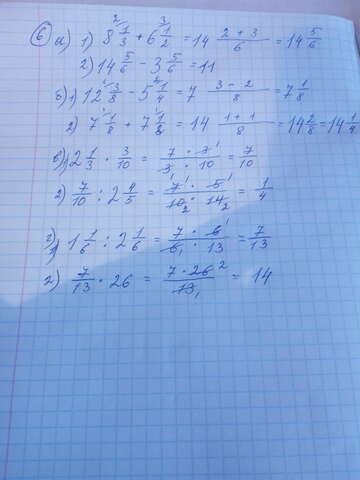 6 а) 1) 8 1/3 + 6 1/2 = 14 (2 + 3)/6 = 14 5/6
2) 14 5/6 - 3 5/6 = 11
б) 1) 12 3/8 - 5 1/4 = 7 (3 - 2)/8 = 7 1/8
2) 7 1/8 + 7 1/8 = 14 (1 + 1)/8 = 14 2/8 = 14 1/4
в) 1) 2 1/3 · 3/10 = (7 · 3)/(3 · 10) = 7/10
2) 7/10 : 2 4/5 = (7 · 5)/(10 · 14) = 1/4
г) 1) 1 1/6 : 2 1/6 = (7 · 6)/(6 · 13) = 7/13
2) 7/13 · 26 = (7 · 26)/13 = 14